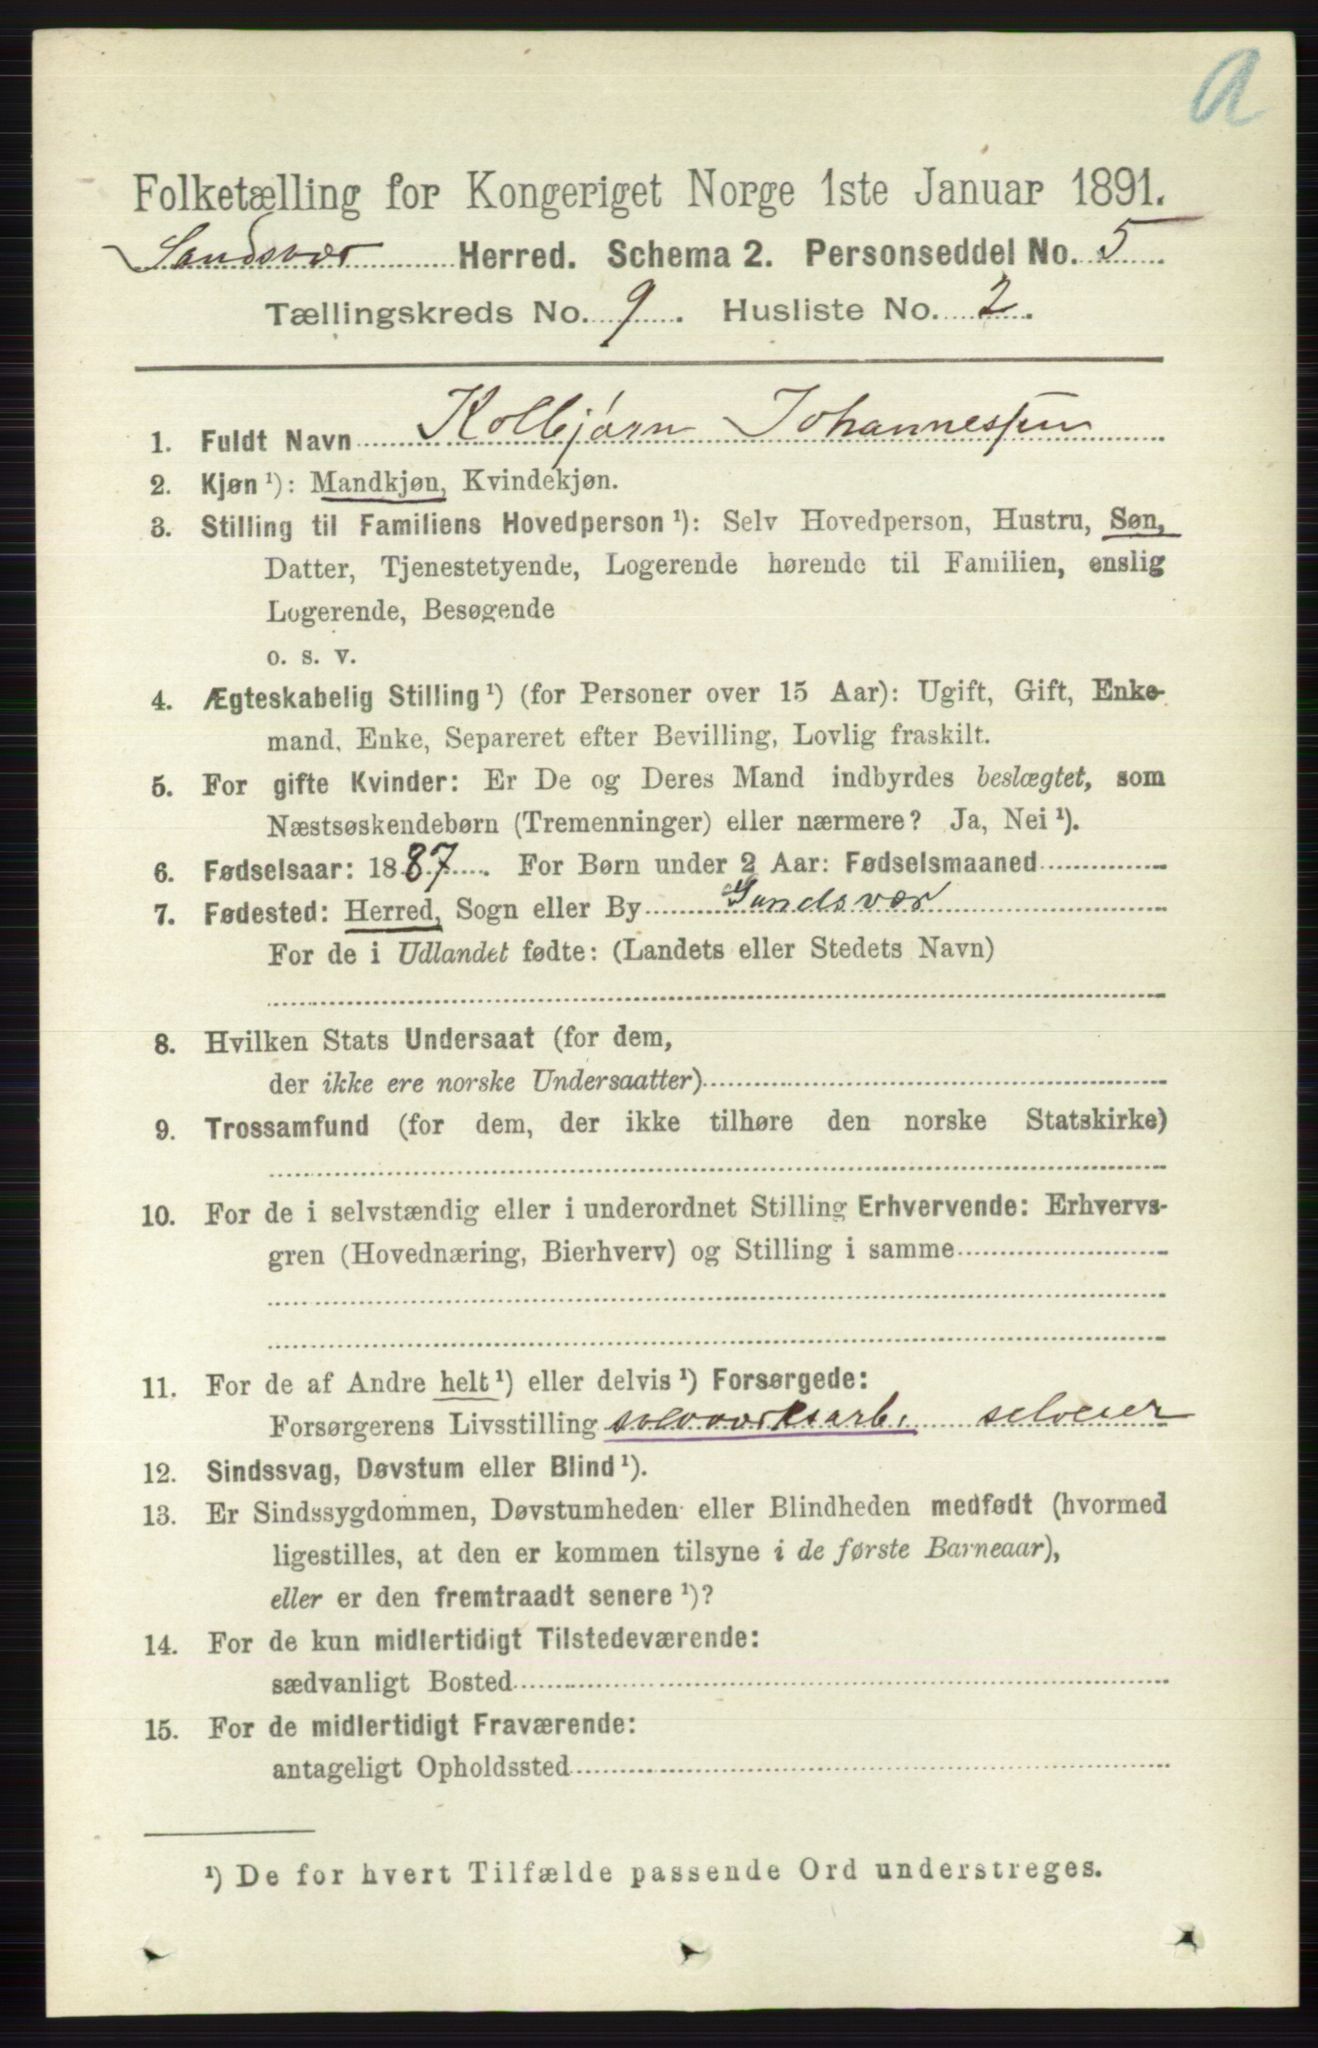 a
Folketælling for Kongeriget Norge 1ste Januar 1891.
Sandsvær Herred. Schema 2. Personseddel No. 5
Tællingskreds No. 9. Husliste No. 2.
1. Fuldt Navn Kolbjørn Johannessen
2. Kjøn ¹): Mandkjøn, Kvindekjøn.
3. Stilling til Familiens Hovedperson ¹): Selv Hovedperson, Hustru, Søn,
Datter, Tjenestetyende, Logerende hørende til Familien, enslig
Logerende, Besøgende
o. s. v.
4. Ægteskabelig Stilling ¹) (for Personer over 15 Aar): Ugift, Gift, Enke-
mand, Enke, Separeret efter Bevilling, Lovlig fraskilt.
5. For gifte Kvinder: Er De og Deres Mand indbyrdes beslægtet, som
Næstsøskendebørn (Tremenninger) eller nærmere? Ja, Nei ¹).
6. Fødselsaar: 1887. For Børn under 2 Aar: Fødselsmaaned
7. Fødested: Herred, Sogn eller By Sandsvær
For de i Udlandet fødte: (Landets eller Stedets Navn)
8. Hvilken Stats Undersaat (for dem,
der ikke ere norske Undersaatter)
9. Trossamfund (for dem, der ikke tilhøre den norske Statskirke)
10. For de i selvstændig eller i underordnet Stilling Erhvervende: Erhvervs-
gren (Hovednæring, Bierhverv) og Stilling i samme
11. For de af Andre helt ¹) eller delvis ¹) Forsørgede:
Forsørgerens Livsstilling sølvverksarb. selveier
12. Sindssvag, Døvstum eller Blind ¹).
13. Er Sindssygdommen, Døvstumheden eller Blindheden medfødt (hvormed
ligestilles, at den er kommen tilsyne i de første Barneaar),
eller er den fremtraadt senere ¹)?
14. For de kun midlertidigt Tilstedeværende:
sædvanligt Bosted
15. For de midlertidigt Fraværende:
antageligt Opholdssted
¹) De for hvert Tilfælde passende Ord understreges.